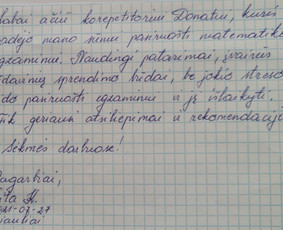 labai ačiū korepetitoriui Donatui, kuris
padėjo mano sūnui pasiruošti matematikos
egzaminui. Naudingi patarimai, įvairūs
uždavinių sprendimo būdai, be jokio streso
pasiruošti egzaminui ir jį išlaikyti.
Tik geriausi atsiliepimai ir rekomendacijos
Sėkmės darbuose!
Pagarbiai,
Rita K.
2021-07-27
Šiauliai